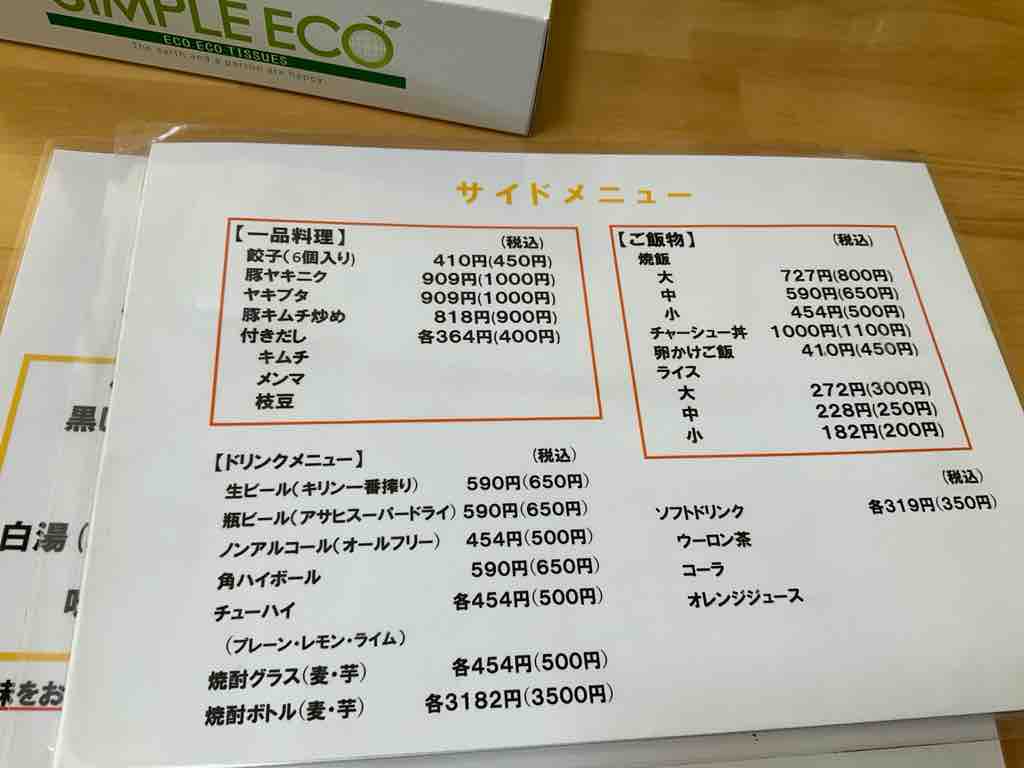 SIMPLE ECO
ECO ECO TISSUES
The earth and a person are happy.
サイドメニュー
【一品料理】 (税込)
餃子(6個入り) 410円(450円)
豚ヤキニク 909円(1000円)
ヤキブタ 909円(1000円)
豚キムチ炒め 818円(900円)
付きだし 各364円(400円)
キムチ
メンマ
枝豆
【ご飯物】 (税込)
焼飯
大 727円(800円)
中 590円(650円)
小 454円(500円)
チャーシュー丼 1000円(1100円)
卵かけご飯 410円(450円)
ライス
大 272円(300円)
中 228円(250円)
小 182円(200円)
【ドリンクメニュー】 (税込)
生ビール(キリン一番搾り) 590円(650円)
瓶ビール(アサヒスーパードライ) 590円(650円)
ノンアルコール(オールフリー) 454円(500円)
角ハイボール 590円(650円)
チューハイ 各454円(500円)
(プレーン・レモン・ライム)
焼酎グラス(麦・芋) 各454円(500円)
焼酎ボトル(麦・芋) 各3182円(3500円)
(税込)
ソフトドリンク 各319円(350円)
ウーロン茶
コーラ
オレンジジュース
黒
白湯(
味をお